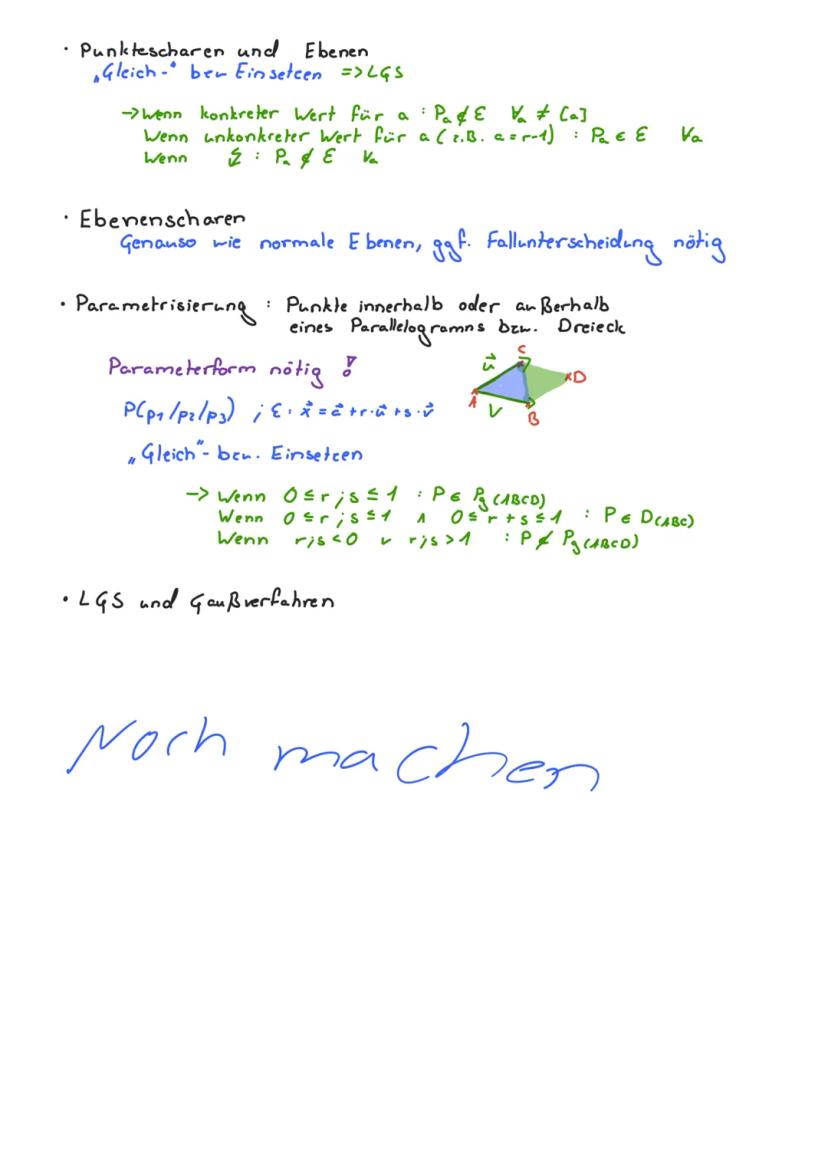 · Punktescharen und Ebenen
„Gleich-" bzw Einsetzen => LGS
-> Wenn konkreter Wert für a : Pa ∉ E ∀a ≠ [a]
Wenn unkonkreter Wert für a (z.B. a = r-1) : Pa ∈ E ∀a
Wenn ↯ : Pa ∉ E ∀a
· Ebenenscharen
Genauso wie normale Ebenen, ggf. Fallunterscheidung nötig
· Parametrisierung : Punkte innerhalb oder außerhalb
eines Parallelogramms bzw. Dreieck
Parameterform nötig !
P(p1/p2/p3) ; E: x⃗ = a⃗ + r·u⃗ + s·v⃗
u⃗ C
A D
V B
„Gleich"- bzw. Einsetzen
-> Wenn 0 ≤ r;s ≤ 1 : P ∈ Pg(ABCD)
Wenn 0 ≤ r;s ≤ 1 ∧ 0 ≤ r + s ≤ 1 : P ∈ D(ABC)
Wenn r;s < 0 ∨ r;s > 1 : P ∉ Pg(ABCD)
· LGS und Gaußverfahren
Noch machen